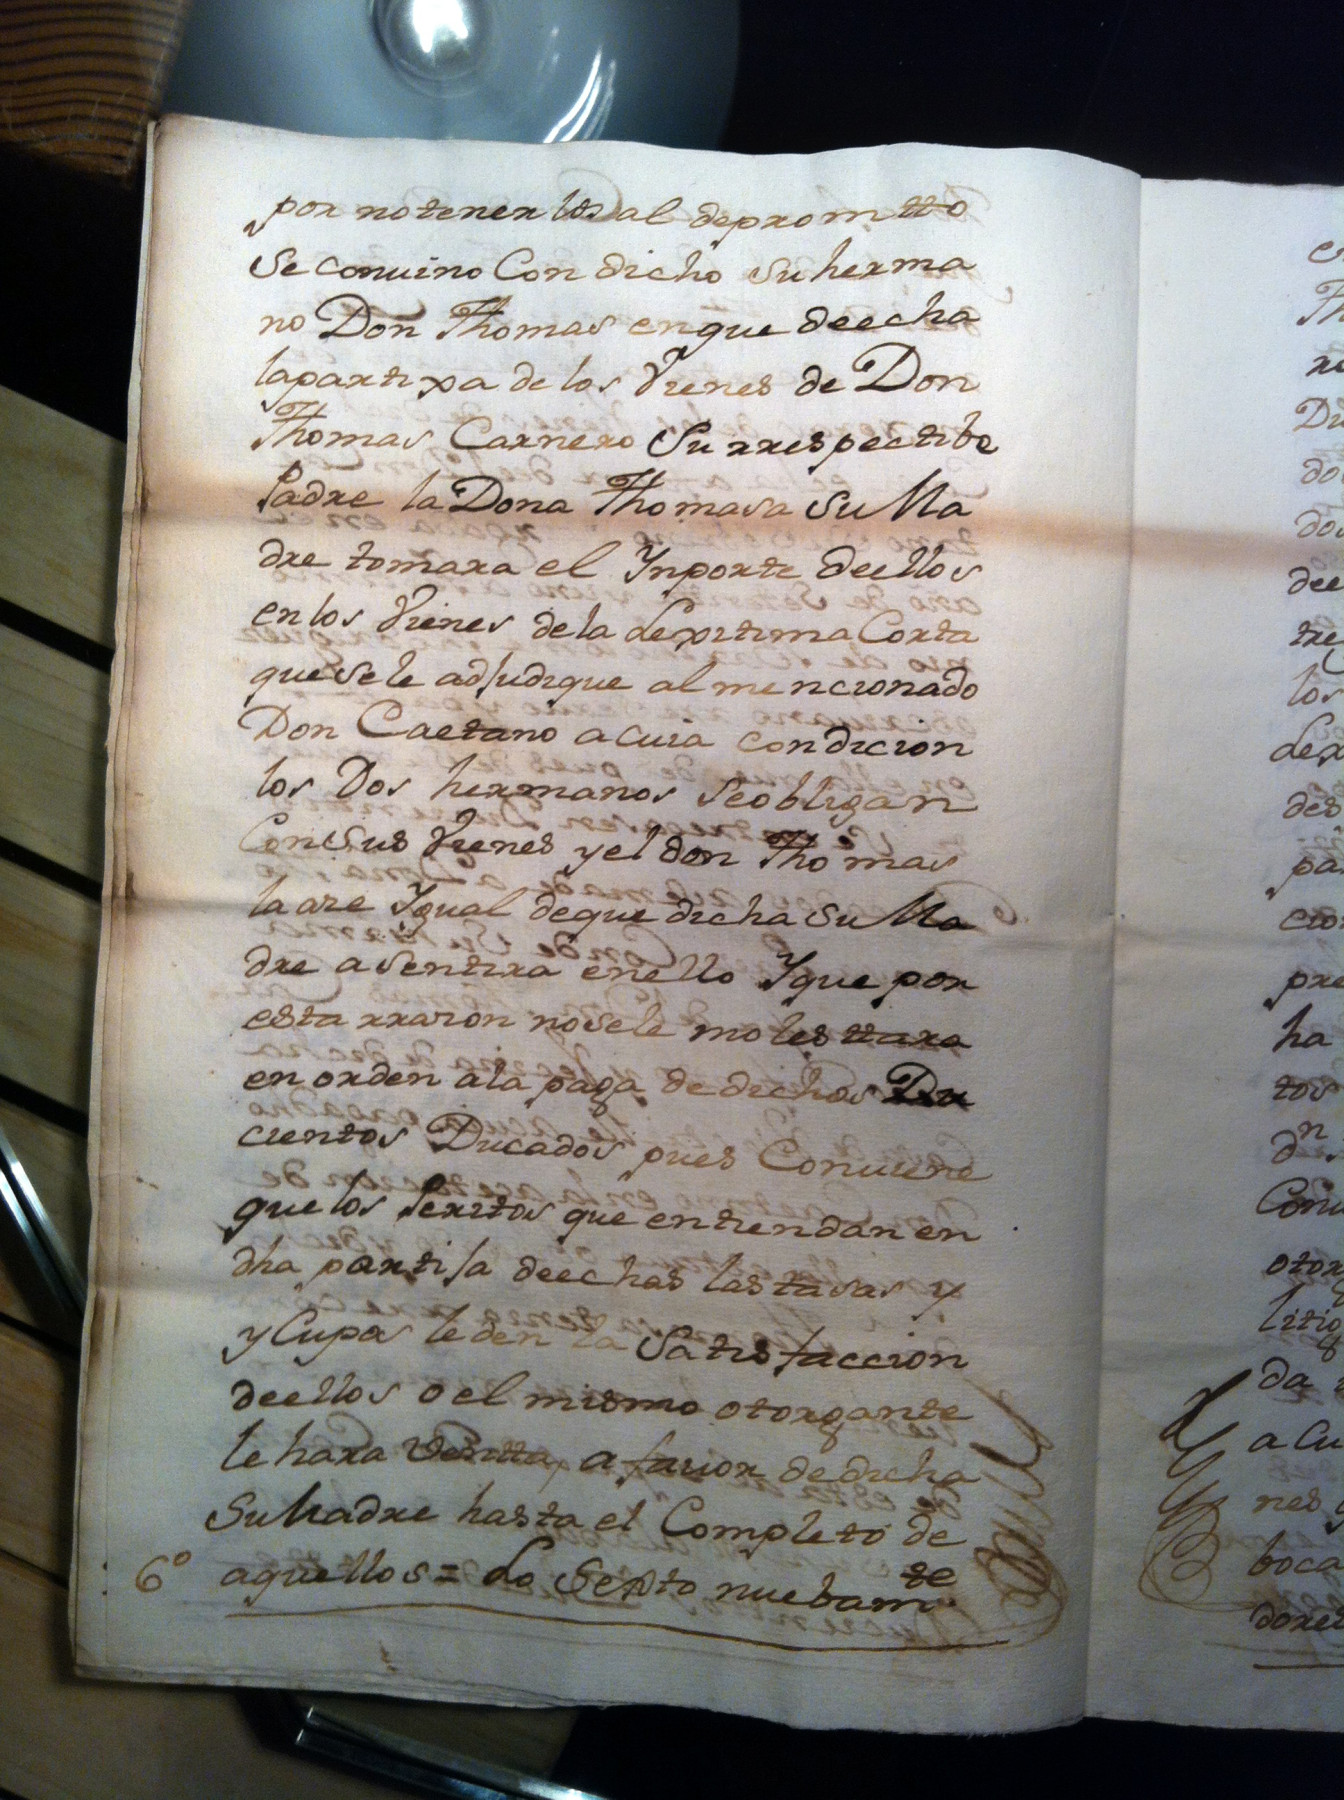 por notener los al depromtto
Se conuino Con dicho su herma
no Don Thomas enque deecha
lapartixa de los Vienes de Don
Thomas Carnero Su rrespectibo
Padre la Dona Thomasa Su Ma
dre tomara el Ynporte deellos
en los Vienes dela Lexitima Corta
quesele adjudique al mencionado
Don Caetano acuia condicion
los Dos hermanos seobligan
Con Sus Vienes y el don Thomas
laaze Ygual deque dicha Su Ma
dre asentira enello Yque por
esta rrazon nosele molesttara
en orden ala paga de dichos Du
cientos Ducados pues Conuiene
que los Peritos que entiendan en
dha partija deechas las tasas y
y Cupos le den la Satisfaccion
deellos o el mismo otorgante
le hara Ventta a fauor de dicha
Su Madre hasta el Completo de
6º aquellos = Lo Sexto nuebamte
en
Th
Du
do
dos
dee
tre
los
Lex
des
pa
cion
pre
ha
tos
dn
Conu
otor
litig
da
a Cu
nes y
boca
dores